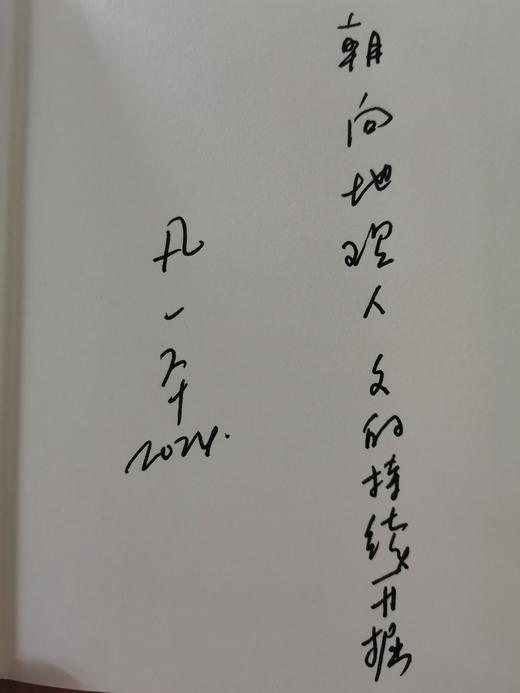 朝向地理人文的持续开掘
凡一平
2024.